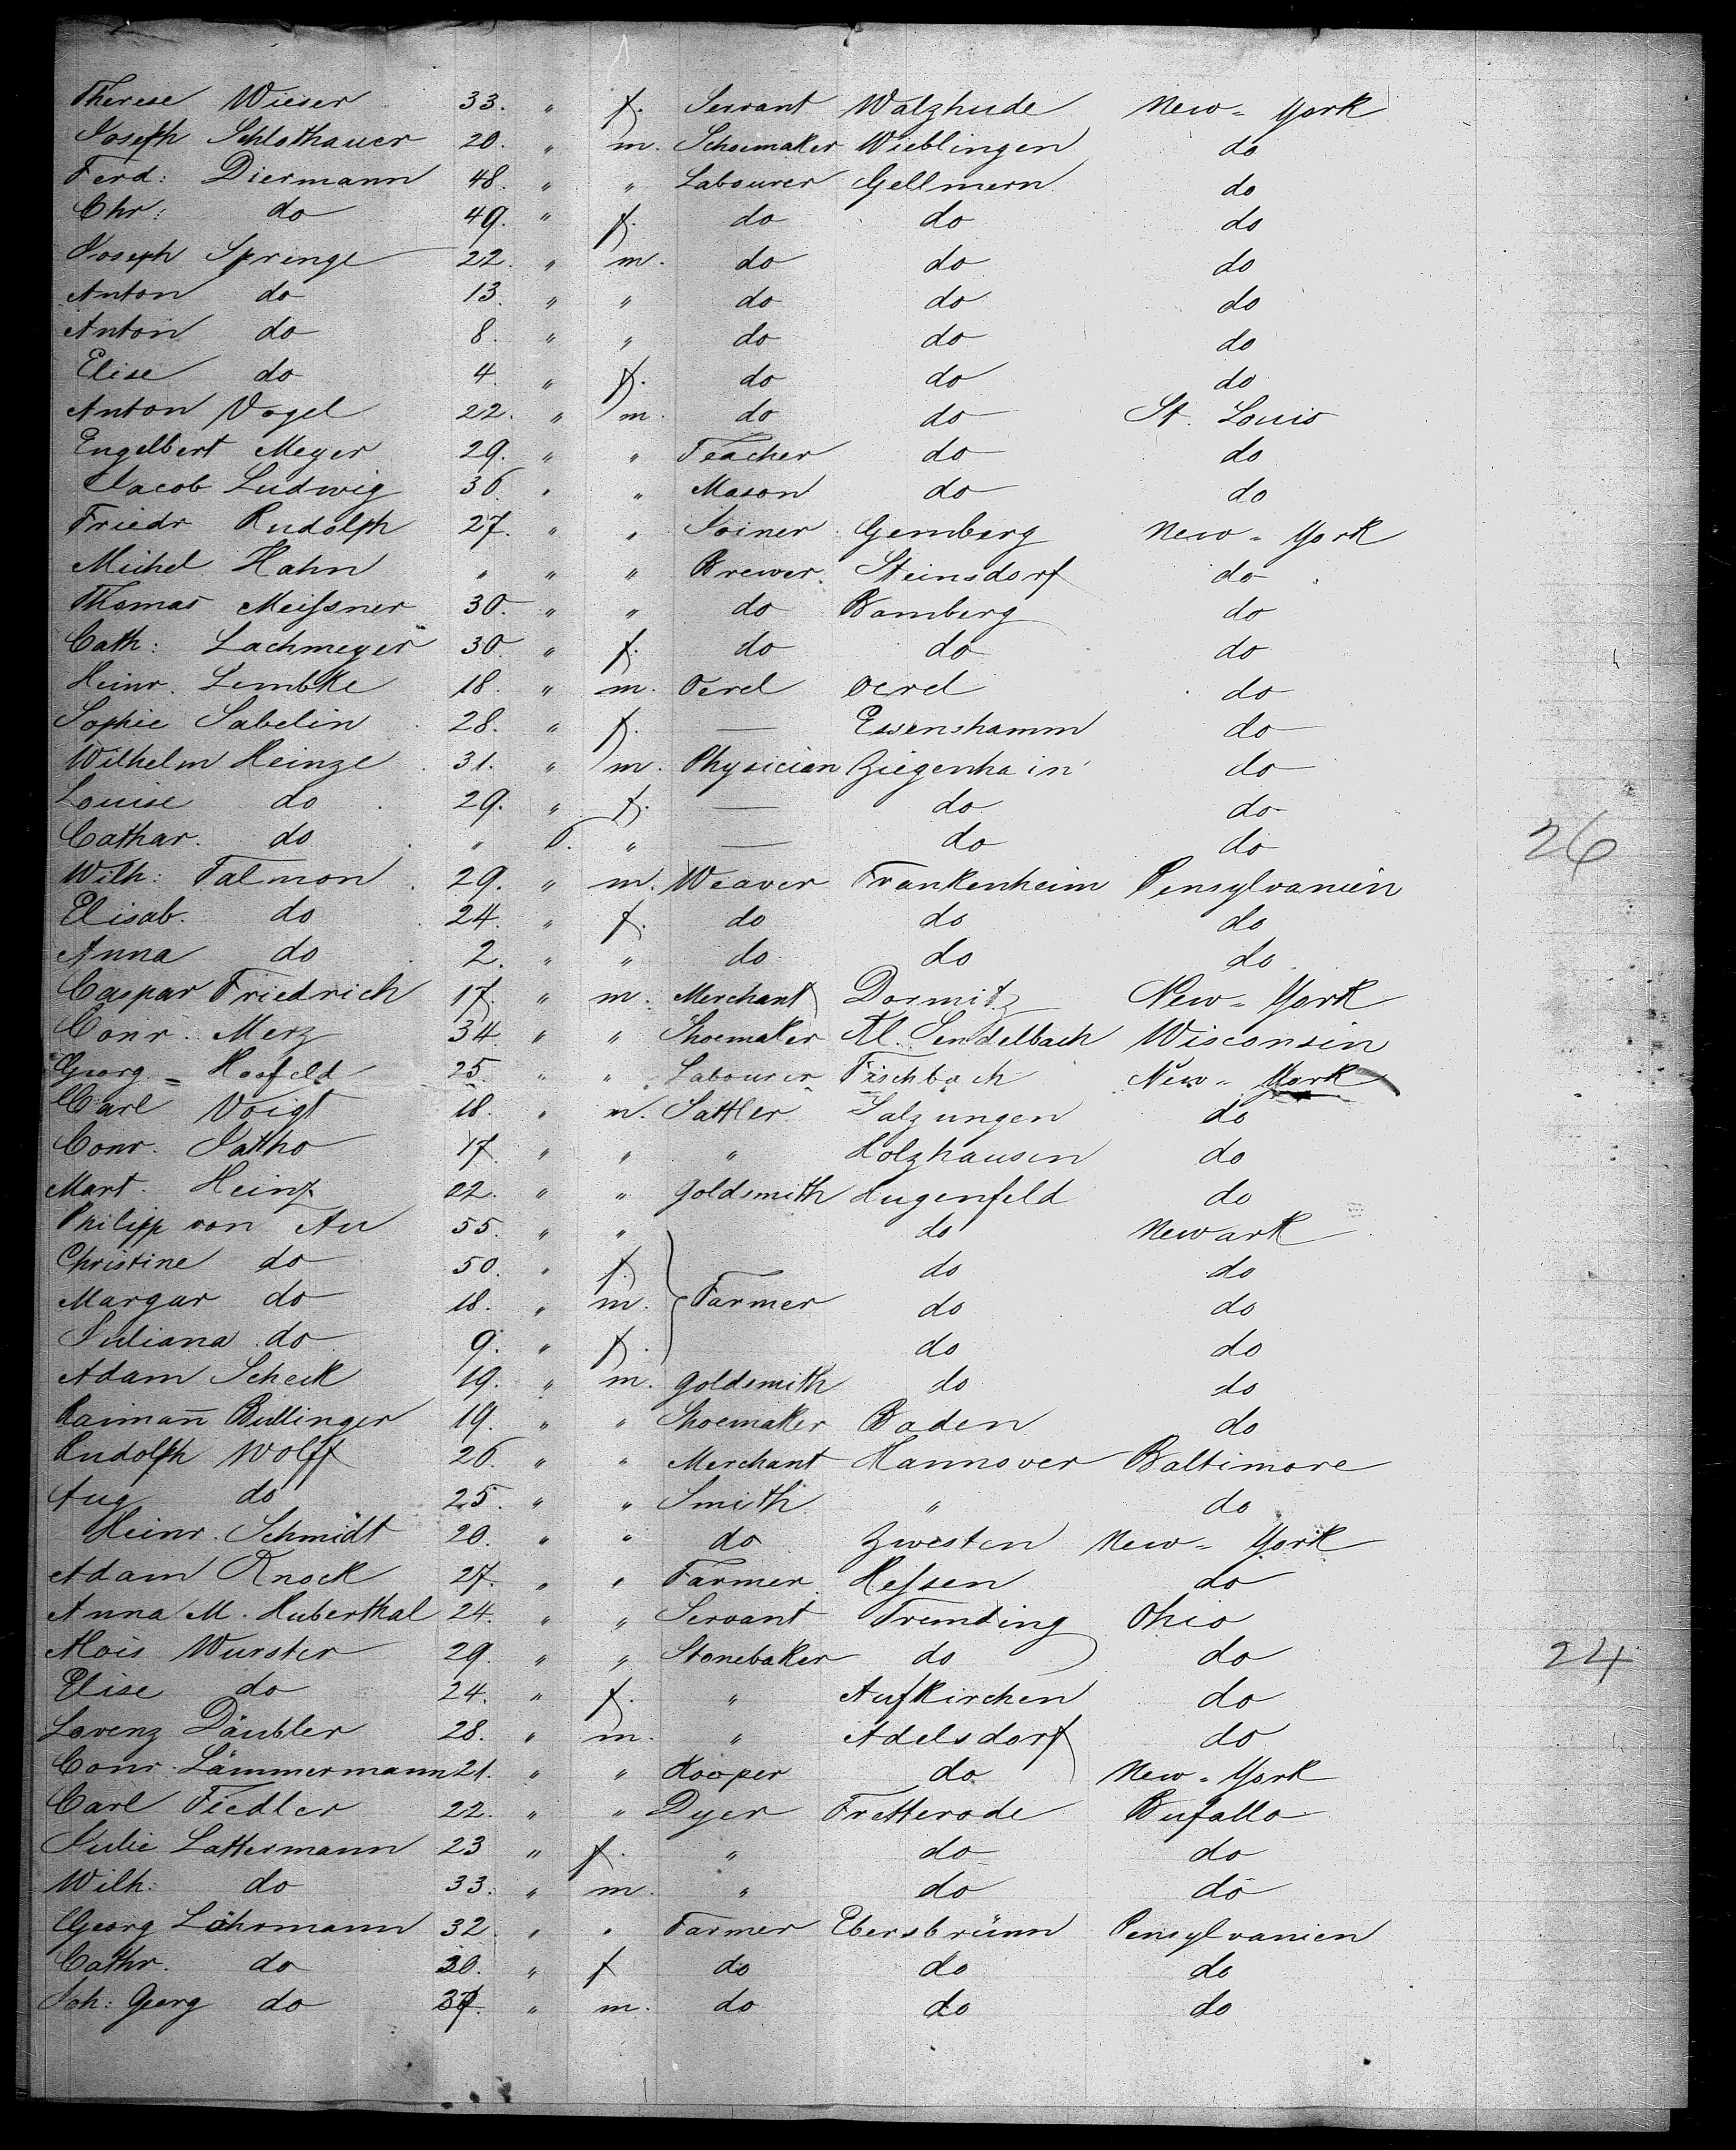 Therese Wieser 33. " f. Servant Walzhude New-York
Joseph Schlothauer 20. " m. Schoemaker Wieblingen do
Ferd: Diermann 48. " " Labourer Gellmern do
Chr: do 49. " f. do do do
Joseph Springe 22. " m. do do do
Anton do 13. " " do do do
Anton do 8. " " do do do
Elise do 4. " f. do do do
Anton Vogel 22. " m. do do St. Louis
Engelbert Meyer 29. " " Teacher do do
Jacob Ludwig 36 " " Mason do do
Friedr Rudolph 27. " " Joiner Gemberg New-York
Michel Hahn " " " Brewer. Steinsdorf do
Thomas Meißner 30. " " do Bamberg do
Cath: Lachmeyer 30. " f. do do do
Heinr. Lembke 18. " m. Oerel Oerel do
Sophie Sabelin 28. " f. — Essenshamm do
Wilhelm Heinze 31. " m. Physician Ziegenhain do
Louise do 29. " f. — do do
Cathar. do " 6. " — do do
26
Wilh: Talmon 29. " m. Weaver Frankenheim Pensylvanien
Elisab. do 24. " f. do do do
Anna do 2. " " do do do
Caspar Friedrich 17. " m. Merchant Dormitz New-York
Conr. Merz 34. " " Shoemaker Kl. Sendelbach Wisconsin
Georg Hosfeld 25. " " Labourer Fischbach New-York
Carl Voigt 18. " m. Sattler Salzungen do
Conr. Jatho 17. " " " Holzhausen do
Mart. Heinz 22. " " Goldsmith Hugenfeld do
Philipp von Au 55. " " do Newark
Christine do 50. " f. do do
Margar do 18. " m. Farmer do do
Juliana do 9. " f. do do
Adam Scheck 19. " m. Goldsmith do do
Raimañ Bullinger 19. " " Shoemaker Baden do
Rudolph Wolff 26. " " Merchant Hannover Baltimore
Aug do 25. " " Smith " do
Heinr. Schmidt 20. " " do Zwesten New-York
Adam Knock 27. " " Farmer Heßen do
Anna M. Huberthal 24. " " Servant Tremding Ohio
Alois Wurster 29. " " Stonebaker do do
24
Elise do 24. " f. " Aufkirchen do
Lorenz Däubler 28. " m. " Adelsdorf do
Conr. Lämmermann 21. " " Kooper do New-York
Carl Fiedler 22. " " Dyer Fretterode Bufallo
Julie Lattermann 23 " f. " do do
Wilh: do 33. " m. " do do
Georg Löhrmann 32. " " Farmer Ebersbrünn Pensylvanien
Cathr. do 30. " f do do do
Joh: Georg do " m. do do do